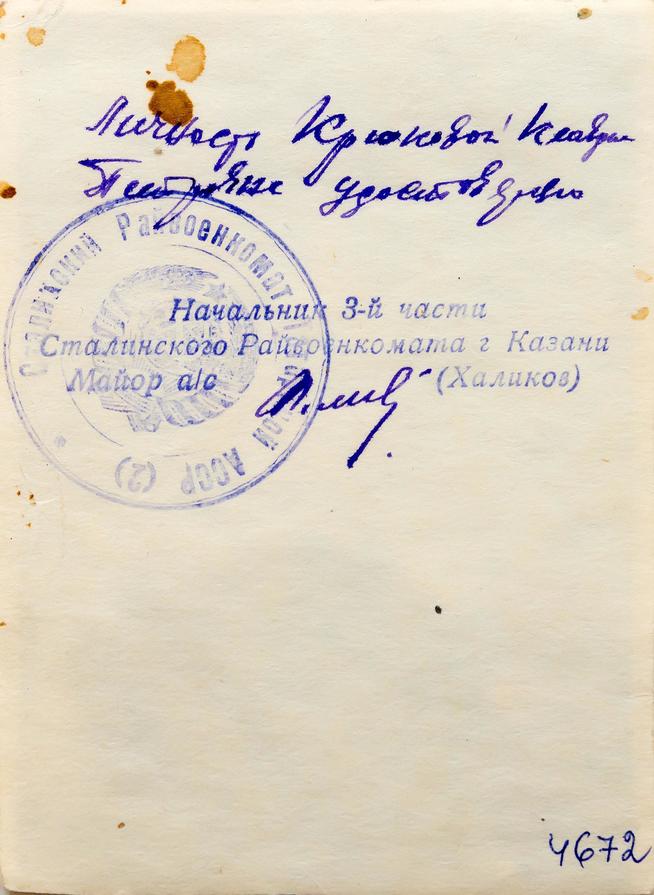 Личность Крюковой Клавдии
Петровны удостоверяю
Сталинский Райвоенкомат Татарской АССР (2)
Начальник 3-й части
Сталинского Райвоенкомата г Казани
Майор а/с (Халиков)
4672